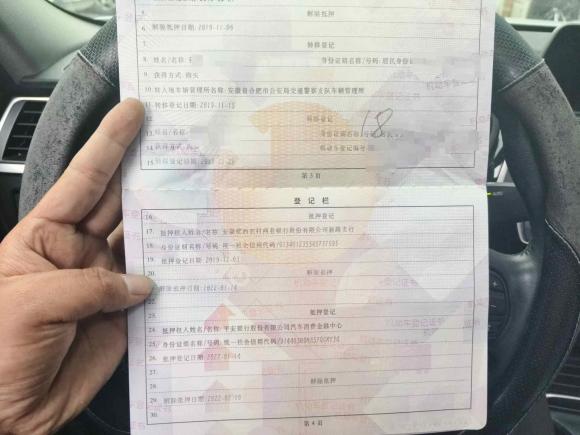 5. 解除抵押
6. 解除抵押日期: 2019-11-06
7. 转移登记
8. 姓名/名称: 身份证明名称/号码: 居民身份证
9. 获得方式: 购买
10. 转入地车辆管理所名称: 安徽省合肥市公安局交通警察支队车辆管理所
11. 转移登记日期: 2019-11-15
12. 转移登记
18
13. 姓名/名称: 身份证明名称/号码
14. 获得方式: 机动车登记编号
15. 转移登记日期
第 3 页
登 记 栏
16. 抵押登记
17. 抵押权人姓名/名称: 安徽肥西农村商业银行股份有限公司 支行
18. 身份证明名称/号码: 统一社会信用代码/
19. 抵押登记日期: 2019-12-03
20. 解除抵押
21. 解除抵押日期: 2022-01-14
22.
23. 抵押登记
24. 抵押权人姓名/名称: 平安银行股份有限公司汽车消费金融中心
25. 身份证明名称/号码: 统一社会信用代码/
26. 抵押登记日期: 2022-01-14
27.
28. 解除抵押
29. 解除抵押日期: 2022-02-10
30.
第 4 页